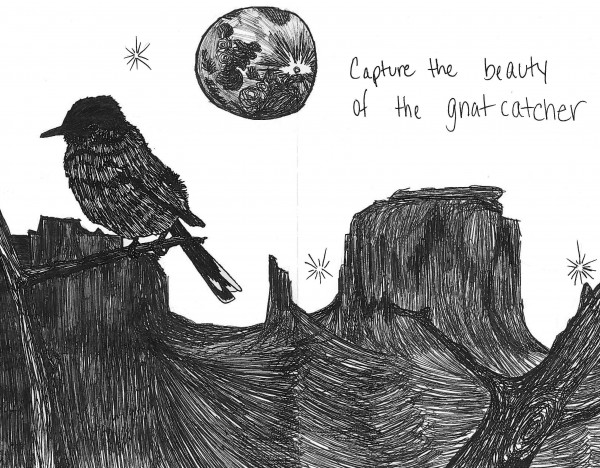 Capture the beauty
of the gnatcatcher